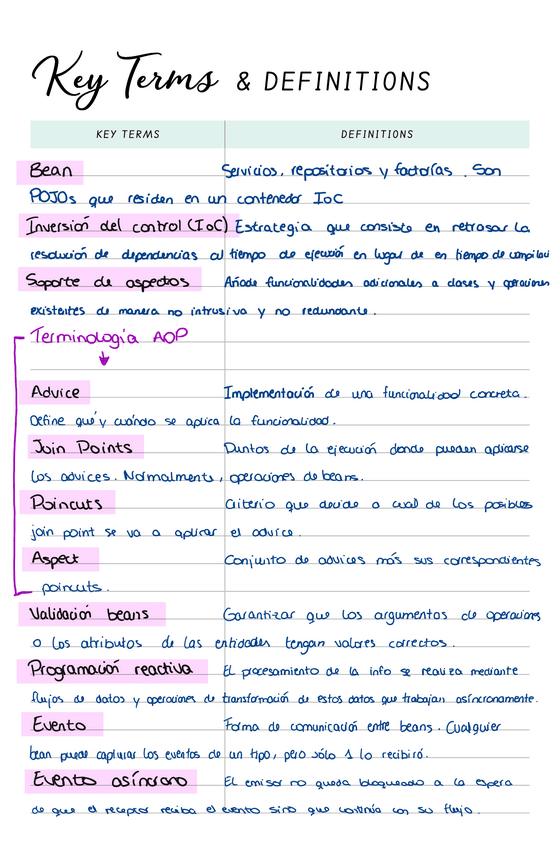 Key Terms & DEFINITIONS
KEY TERMS DEFINITIONS
Bean Servicios, repositorios y factorías. Son
POJOs que residen en un contenedor IoC
Inversión del control (IoC) Estrategia que consiste en retrasar la
resolución de dependencias al tiempo de ejecución en lugar de en tiempo de compilaci
Soporte de aspectos Añade funcionalidades adicionales a clases y operaciones
existentes de manera no intrusiva y no redundante.
Terminología AOP
Advice Implementación de una funcionalidad concreta.
Define qué y cuándo se aplica la funcionalidad.
Join Points Puntos de la ejecución donde pueden aplicarse
los advices. Normalmente, operaciones de beans.
Poincuts Criterio que decide a cual de los posibles
join point se va a aplicar el advice.
Aspect Conjunto de advices más sus correspondientes
poincuts.
Validación beans Garantizar que los argumentos de operaciones
o los atributos de las entidades tengan valores correctos.
Programación reactiva El procesamiento de la info se realiza mediante
flujos de datos y operaciones de transformación de estos datos que trabajan asíncronamente.
Evento Forma de comunicación entre beans. Cualquier
bean puede capturar los eventos de un tipo, pero sólo 1 lo recibirá.
Evento asíncrono El emisor no queda bloqueado a la espera
de que el receptor reciba el evento sino que continúa con su flujo.